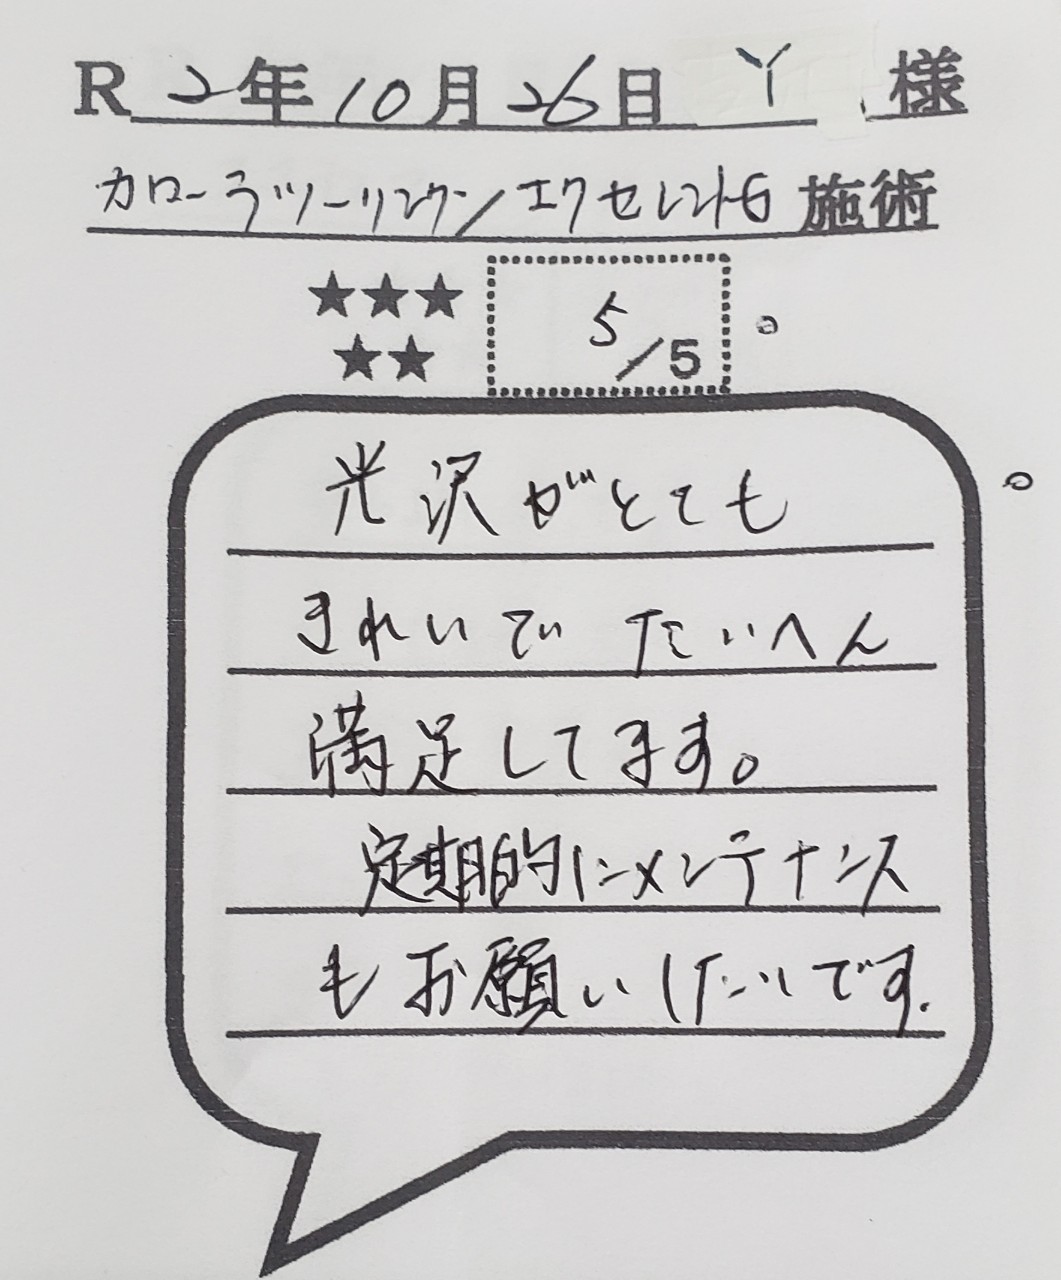 R 2年10月26日 Y 様
カローラツーリング/エクセレントG 施術
★★★
★★
5/5
光沢がとても
きれいで たいへん
満足してます。
定期的にメンテナンス
もお願いしたいです.